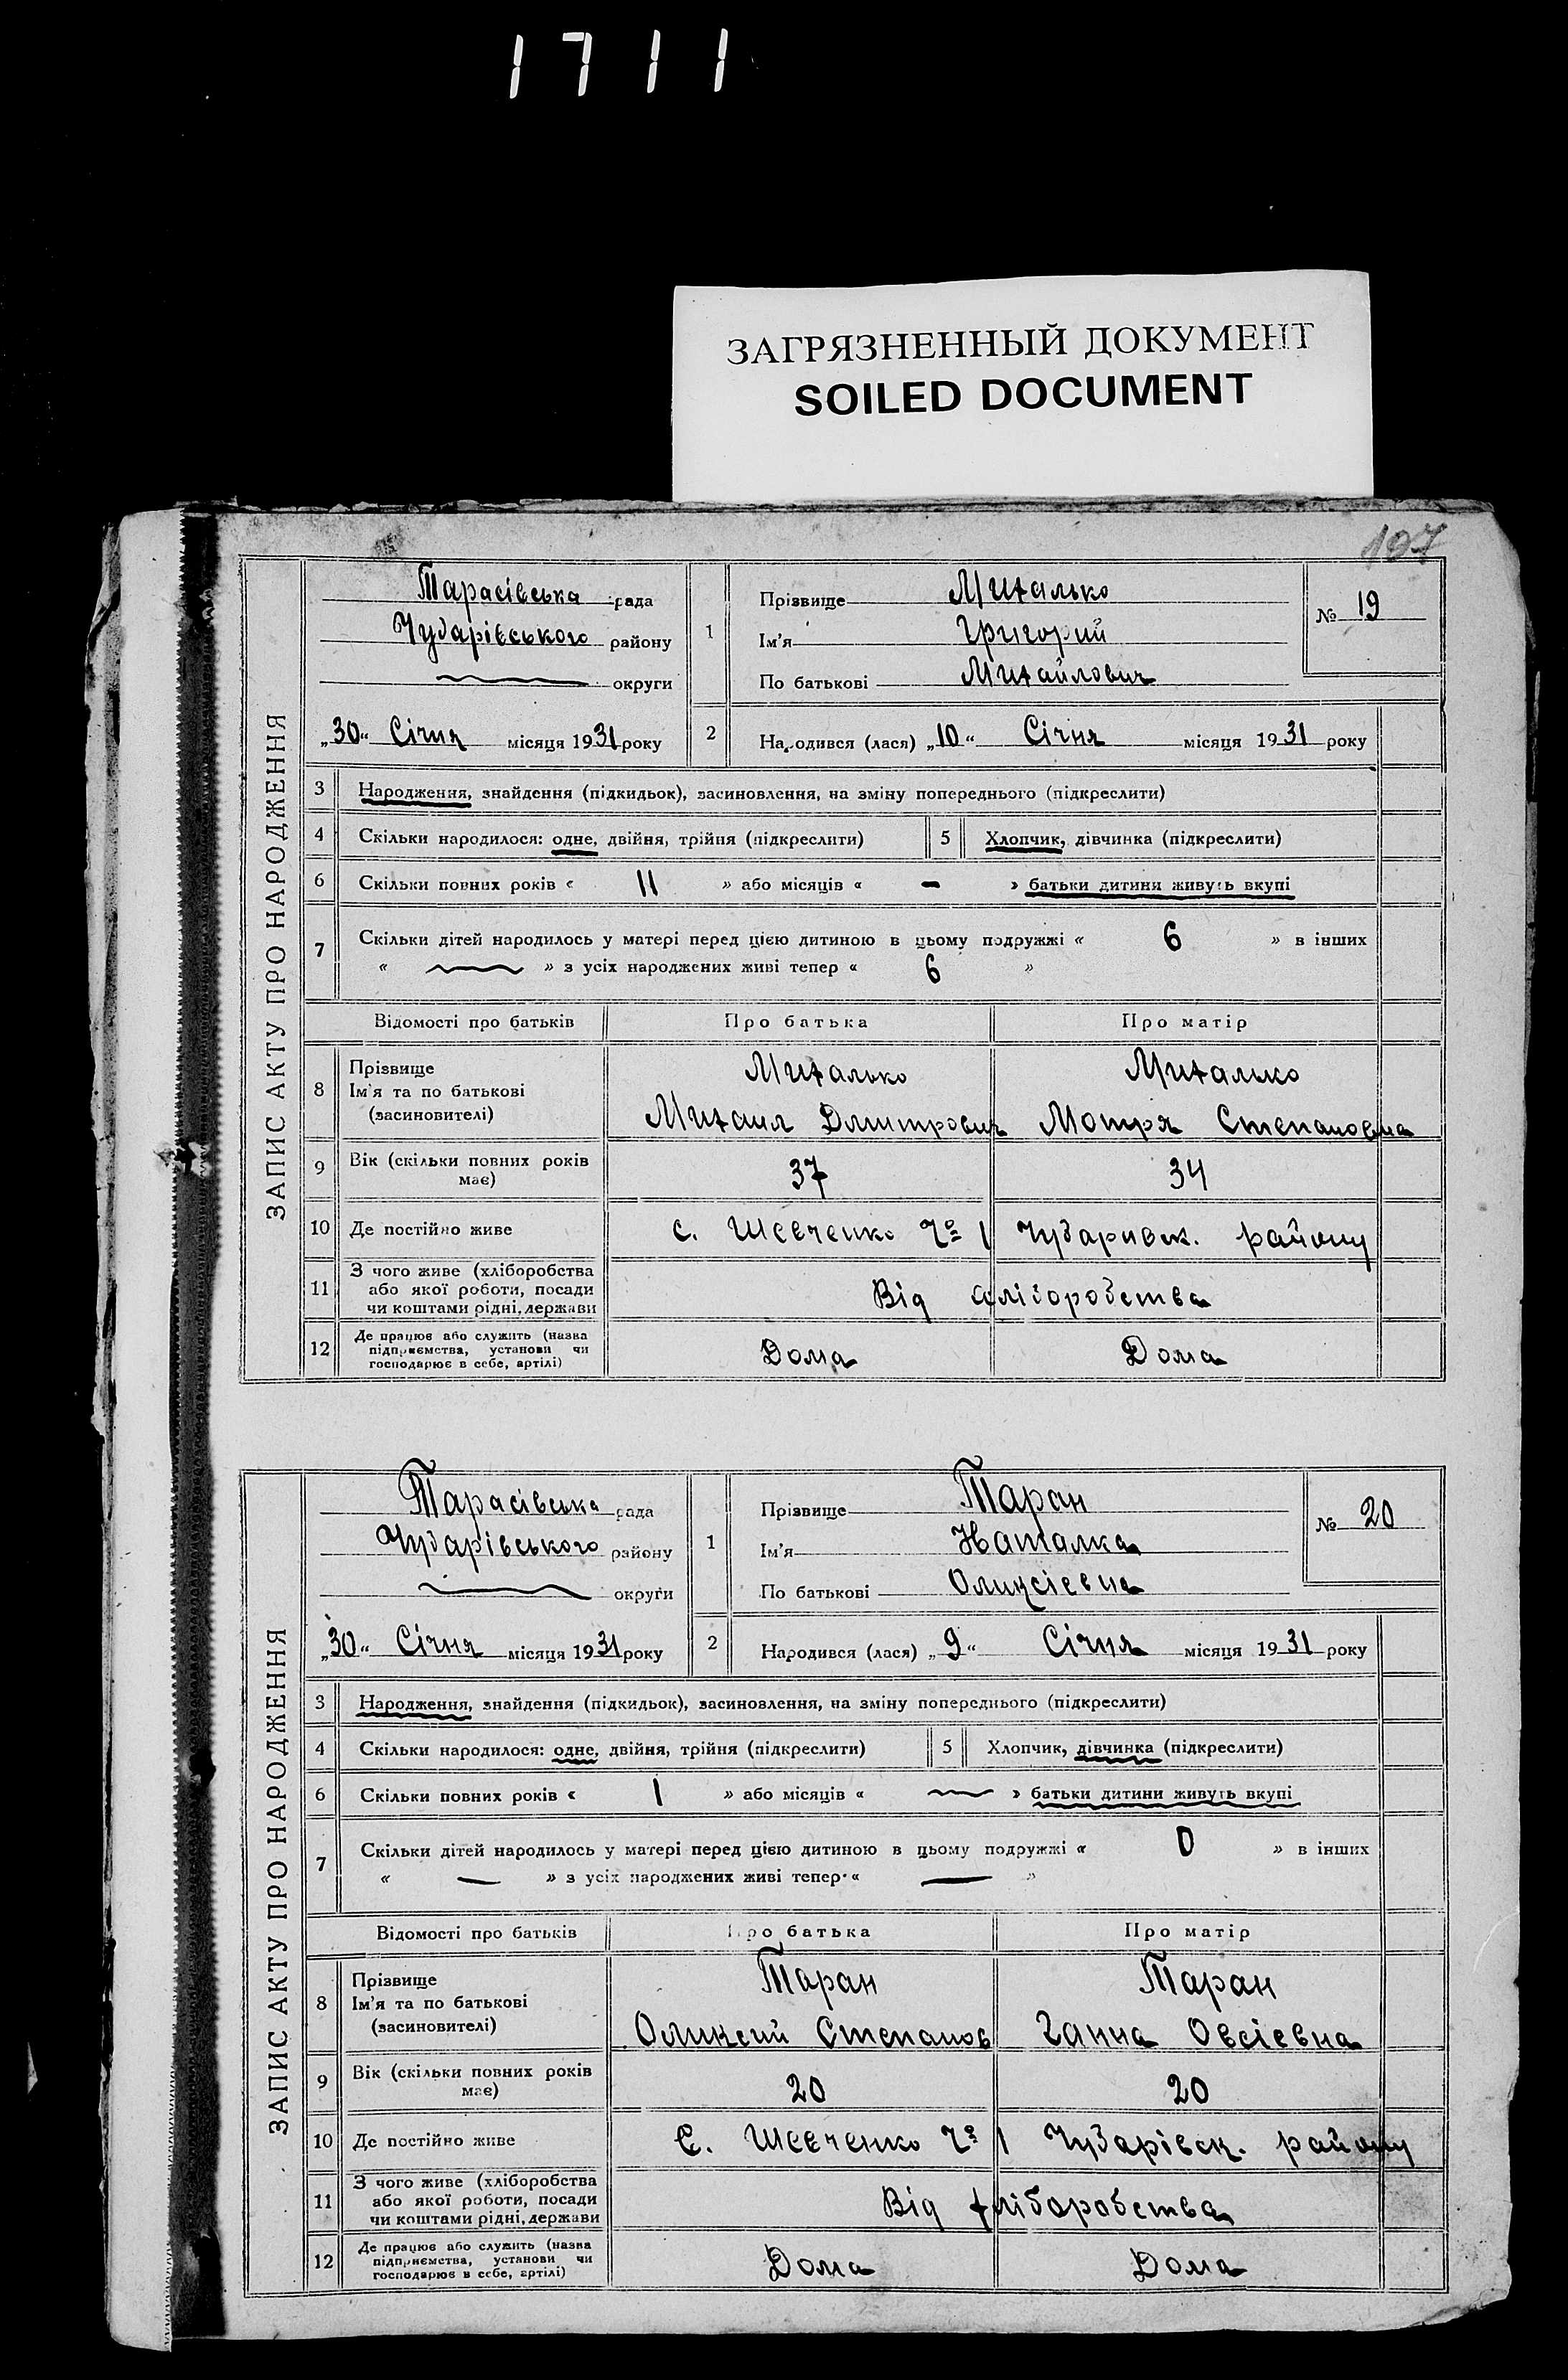 1711
ЗАГРЯЗНЕННЫЙ ДОКУМЕНТ
SOILED DOCUMENT
107
ЗАПИС АКТУ ПРО НАРОДЖЕННЯ
Тарасівська рада
Чубарівського району
округи
„30“ Січня місяця 1931 року
1 Прізвище Михалько
Ім'я Григорий
По батькові Михайлович
№ 19
2 Народився (лася) „10“ Січня місяця 1931 року
3 Народження, знайдення (підкидьок), засиновлення, на зміну попереднього (підкреслити)
4 Скільки народилося: одне, двійня, трійня (підкреслити) 5 Хлопчик, дівчинка (підкреслити)
6 Скільки повних років « 11 » або місяців « — » батьки дитини живуть вкупі
7 Скільки дітей народилось у матері перед цією дитиною в цьому подружжі « 6 » в інших
« — » з усіх народжених живі тепер « 6 »
Відомості про батьків Про батька Про матір
8 Прізвище Михалько Михалько
Ім'я та по батькові
(засиновителі) Михаил Дмитрович Мотря Степановна
9 Вік (скільки повних років має) 37 34
10 Де постійно живе с. Шевченко Ч= 1 Чубаривск. району
11 З чого живе (хліборобства
або якої роботи, посади
чи коштами рідні, держави Від хліборобства
12 Де працює або служить (назва
підприємства, установи чи
господарює в себе, артілі) Дома Дома
ЗАПИС АКТУ ПРО НАРОДЖЕННЯ
Тарасівська рада
Чубарівського району
округи
„30“ Січня місяця 1931 року
1 Прізвище Таран
Ім'я Наталка
По батькові Оликсіевна
№ 20
2 Народився (лася) „9“ Січня місяця 1931 року
3 Народження, знайдення (підкидьок), засиновлення, на зміну попереднього (підкреслити)
4 Скільки народилося: одне, двійня, трійня (підкреслити) 5 Хлопчик, дівчинка (підкреслити)
6 Скільки повних років « 1 » або місяців « — » батьки дитини живуть вкупі
7 Скільки дітей народилось у матері перед цією дитиною в цьому подружжі « 0 » в інших
« — » з усіх народжених живі тепер « — »
Відомості про батьків Про батька Про матір
8 Прізвище Таран Таран
Ім'я та по батькові
(засиновителі) Оликсий Степанов Ганна Овсіевна
9 Вік (скільки повних років має) 20 20
10 Де постійно живе С. Шевченко Ч= 1 Чубарівск. району
11 З чого живе (хліборобства
або якої роботи, посади
чи коштами рідні, держави Від хліборобства
12 Де працює або служить (назва
підприємства, установи чи
господарює в себе, артілі) Дома Дома